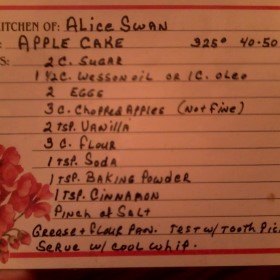 KITCHEN OF: ALICE SWAN
: APPLE CAKE 325° 40-50
S: 2 C. SUGAR
1 1/2 C. WESSON OIL OR 1 C. OLEO
2 EGGS
3 C. CHOPPED APPLES (NOT FINE)
2 TSP. VANILLA
3 C. FLOUR
1 TSP. SODA
1 TSP. BAKING POWDER
1 TSP. CINNAMON
PINCH OF SALT
GREASE + FLOUR PAN. TEST W/ TOOTH PIC
SERVE W/ COOL WHIP.